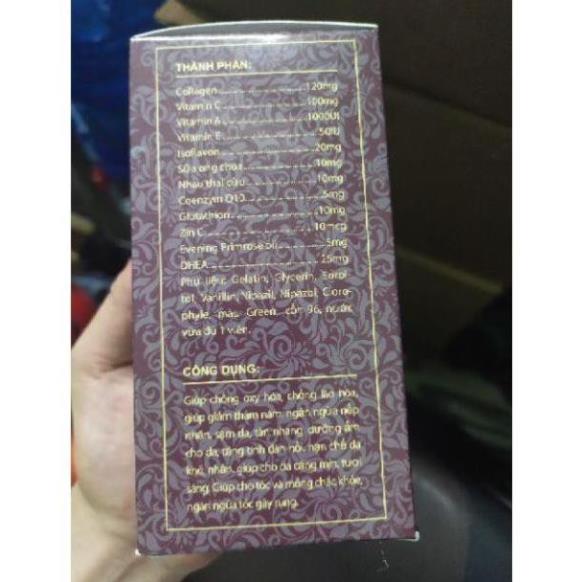 THÀNH PHẦN:
Collagen...................120mg
Vitamin C...................100mg
Vitamin A...................1000UI
Vitamin E...................50IU
Isoflavon...................20mg
Sữa ong chúa...................10mg
Nhau thai cừu...................10mg
Coenzym Q10...................5mg
Glutathion...................10mg
Zin C...................10mcg
Evening Primrose oil...................5mg
DHEA...................25mg
Phụ liệu: Gelatin, Glycerin, Sorbi-
tol, Vanillin, Nipazil, Nipazol, Cloro-
phyle, màu Green, cồn 96, nước
vừa đủ 1 viên.
CÔNG DỤNG:
Giúp chống oxy hóa, chống lão hóa,
giúp giảm thâm nám, ngăn ngừa nếp
nhăn, sạm da, tàn nhang, dưỡng ẩm
cho da, tăng tính đàn hồi, hạn chế da
khô, nhăn, giúp cho da căng mịn, tươi
sáng. Giúp cho tóc và móng chắc khỏe,
ngăn ngừa tóc gãy rụng.